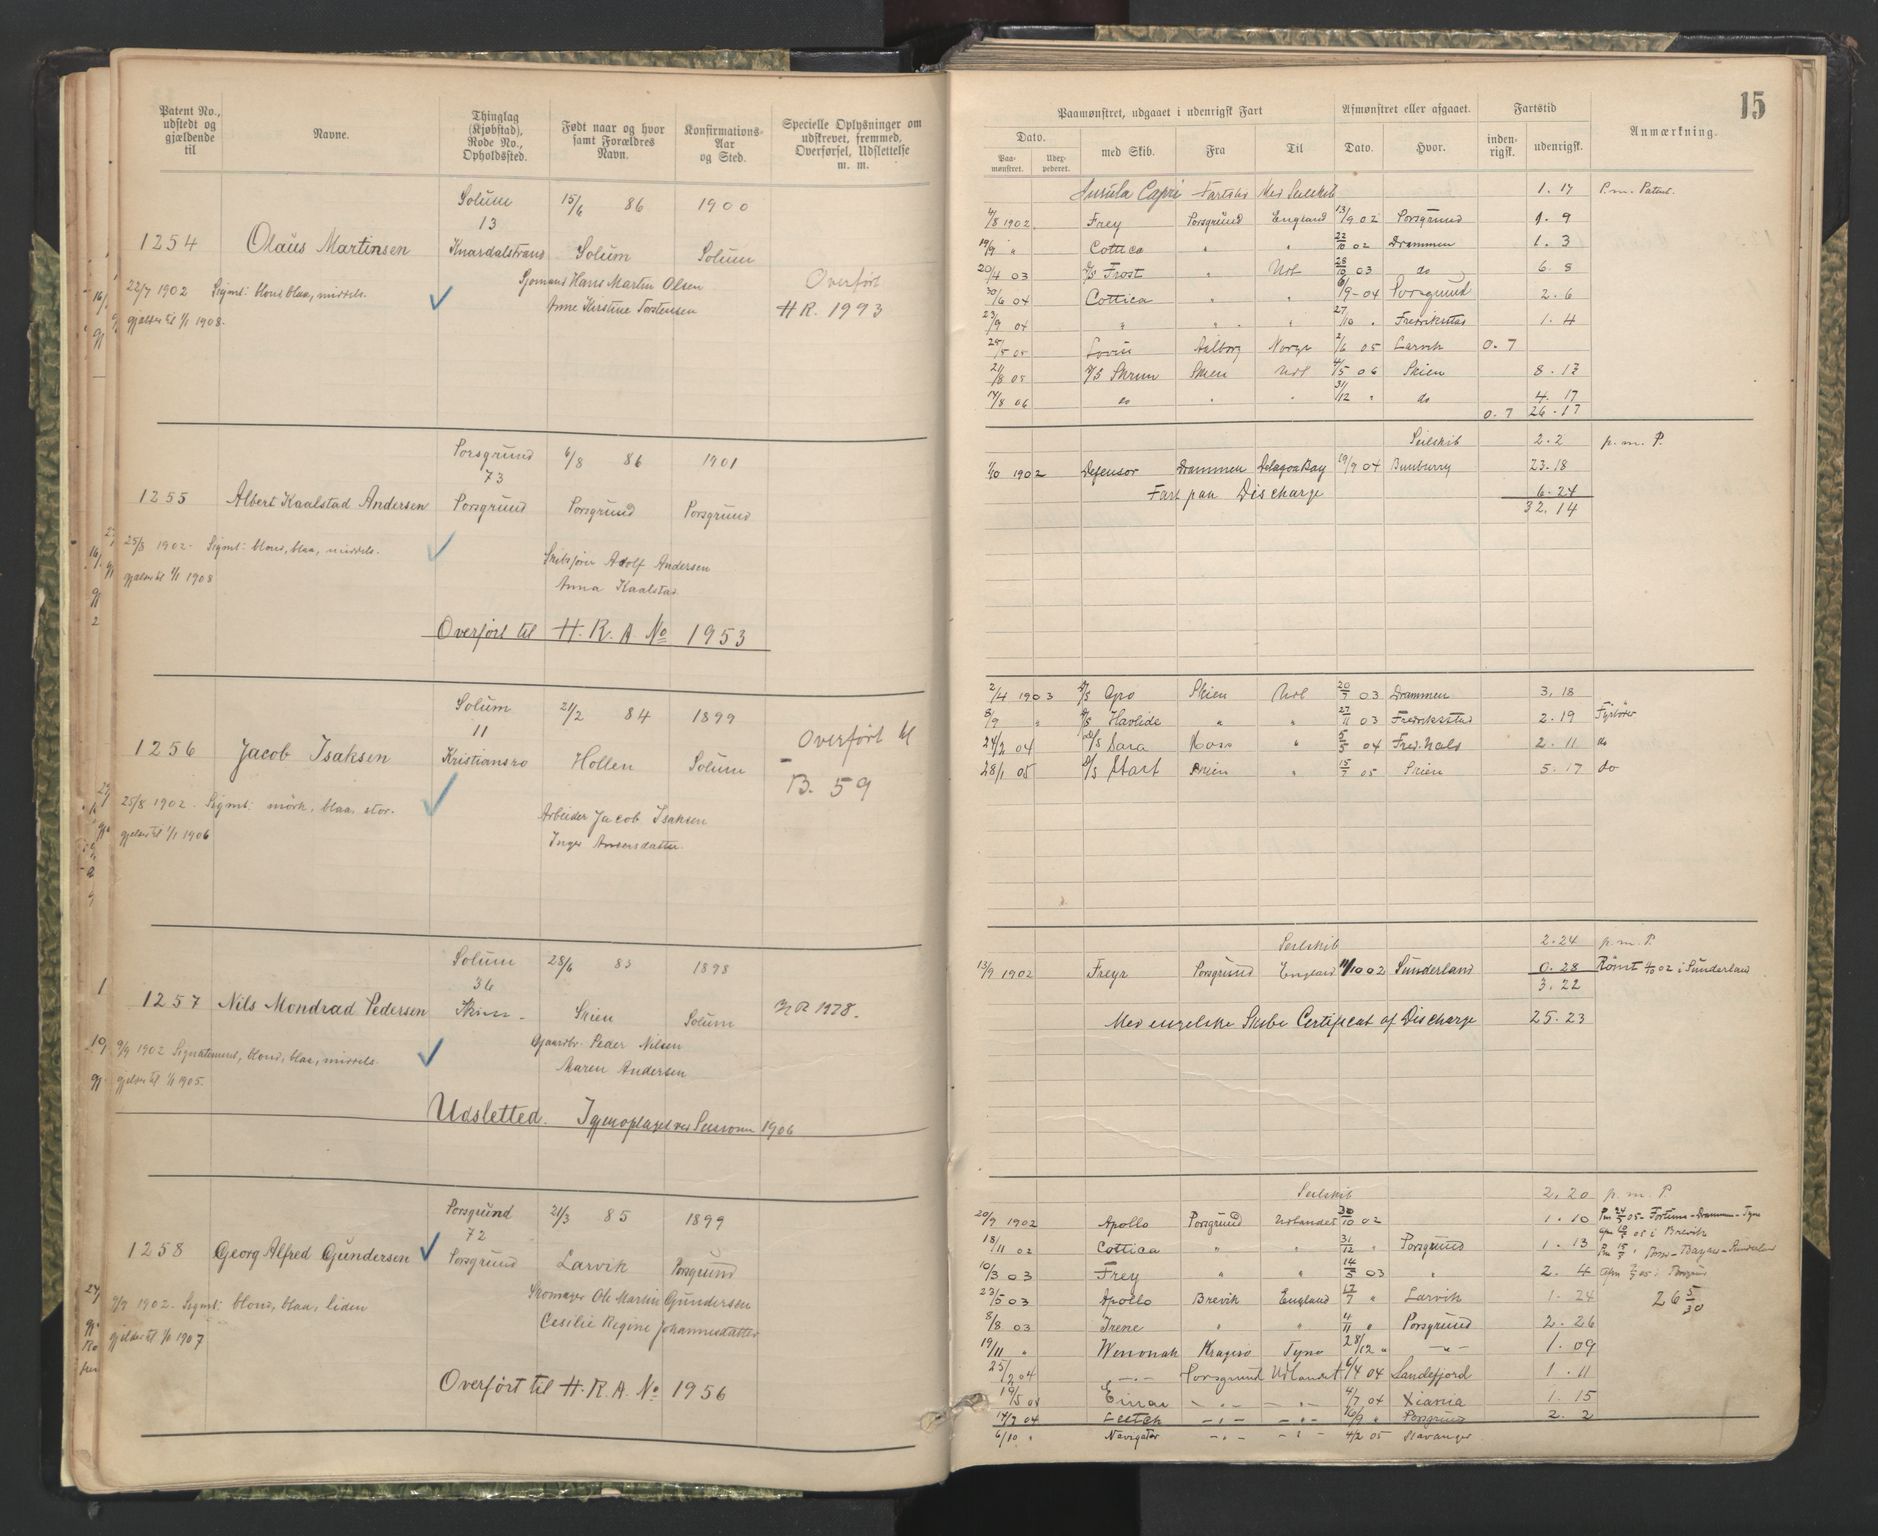 Patent No., udstedt og gjældende til
Navne.
Thinglag (Kjøbstad), Rode No., Opholdssted.
Født naar og hvor samt Forældres Navn.
Konfirmations-Aar og Sted.
Specielle Oplysninger om udskrevet, fremmed, Overførsel, Udslettelse m. m.
Solum 15/6 86 1900
13
1254 Olaus Martinsen Knardalstrand Solum Solum
22/7 1902 Signt: blond, blaa, middels. Sjømand Hans Martin Olsen Overført
gjælder til 1/1 1908. Anne Kirstine Torstensen H R. 1993
Porsgrund 6/8 86 1901
73
1255 Albert Kaalstad Andersen Porsgrund Porsgrund Porsgrund
25/8 1902. Signt: blond, blaa, middels. Adolf Andersen
gjælder til 1/1 1908 Anna Kaalstad
Overført til H. R. A. No 1953
Solum 21/2 84 1899
11
1256 Jacob Isaksen Kristiansro Hollen Solum Overført til
B. 59
25/8 1902. Signt: mörk, blaa, stor. Arbeider Jacob Isaksen
gjelder til 1/1 1906 Inger Andersdatter.
Solum 28/6 83 1898
36
1257 Nils Mondrad Pedersen Skien Solum 1928.
9/9 1902 Signalement, blond, blaa, middels. Gaardbr. Peder Nilsen
gjelder til 1/1 1905. Maren Andersen
Udsletted. Igjenoptaget ved Session 1906
Porsgrund 21/3 85 1899
72
1258 Georg Alfred Gundersen Porsgrund Larvik Porsgrund
9/9 1902. Signt: blond, blaa, liden Skomager Ole Martin Gundersen
gjelder til 1/1 1907 Cesilie Regine Johannesdatter
Overført til H. R. A. No 1956
15
Paamønstret, udgaaet i udenrigsk Fart
Afmønstret eller afgaaet.
Fartstid
Anmærkning.
Dato.
Paamønstret.
Udexpederet.
med Skib.
Fra
Til
Dato.
Hvor.
indenrigsk.
udenrigsk.
Insula Capri Fartstid Med Seilskib 1. 17 P. m. Patent.
4/8 1902. Frey Porsgrund England 13/9 02 Porsgrund 1. 9
19/9 " Cottica " " 22/10 02 Drammen 1. 3
20/4 03 Frost " Udl 28/10 03 do 6. 8
30/6 04 Cottica " " 6/9 - 04 Porsgrund 2. 6
23/9 04 " " " 27/10 " Fredriksstad 1. 4
25/5 05 Lovise Aalborg Norge 2/6 05 Larvik 0. 7
21/8 05 Skrim Skien Udl 4/5 06 Skien 8. 13
14/8 06 do " " 31/12 " do 4. 17
0. 7 26. 17
Seilskib 2. 2 p. m. P.
1/10 1902 Defensor Drammen Delagoa Bay 19/9 04 Bunburry 23. 18
Fart paa Discharge 6. 24
32. 14
2/4 1903 D/S Gro Skien Udl 20/7 03 Drammen 3. 18
8/9 " D/S Havlide " " 27/11 03 Fredriksstad 2. 19 Fyrböder
24/2 04 D/S Sara Moss " 5/5 04 Fred.hald 2. 11 do
28/1 05 D/S Start Skien " 15/7 05 Skien 5. 17 do
Seilskib 2. 24 p. m. P.
13/9 1902 Freyr Porsgrund England 11/10 02 Sunderland 0. 28 Römt 4/10 02 i Sunderland
3. 22
Med engelske Skibe Certificat of Discharge 25. 23
Seilskib 2. 20 p. m. P.
20/9 1902 Apollo Porsgrund Udlandet 30/10 02 1. 10 Fortuna - Drammen - Tyne
18/11 02 Cottica " " 31/12 " Porsgrund 1. 13 05 i Brevik
10/3 03 Frey " " 14/5 03 " 2. 4
23/5 03 Apollo Brevik England 17/7 " Larvik 1. 24 26 5/30
8/8 03 Irene " " 4/11 " Porsgrund 2. 26
19/11 " Wenonah Kragerö Tyne 28/12 " -"- 1. 09
25/2 04 -"- Porsgrund Udlandet 6/4 04 Sandefjord 1. 11
19/5 04 Einar -"- -"- 4/7 04 Xiania 1. 15
14/7 04 -"- -"- 16/9 " Porsgrund 2. 2
6/10 " Navigator -"- -"- 4/2 05 Stavanger